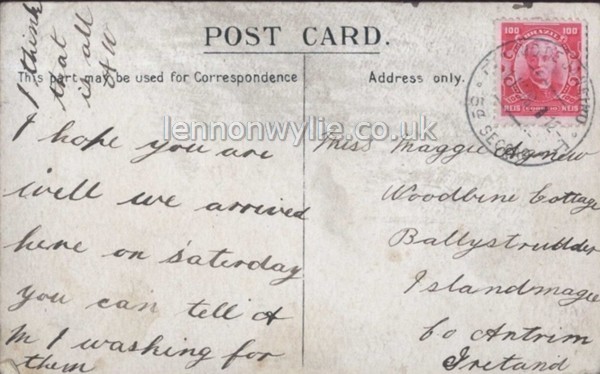 POST CARD.
This part may be used for Correspondence
Address only.
I think
that
is all
lennonwylie.co.uk
I hope you are
well we arrived
here on saterday
you can tell A
M I washing for
them
Miss Maggie Agnew
Woodbine Cottage
Ballystrudder
Islandmagee
Co Antrim
Ireland
BRAZIL
100
100
REIS
REIS